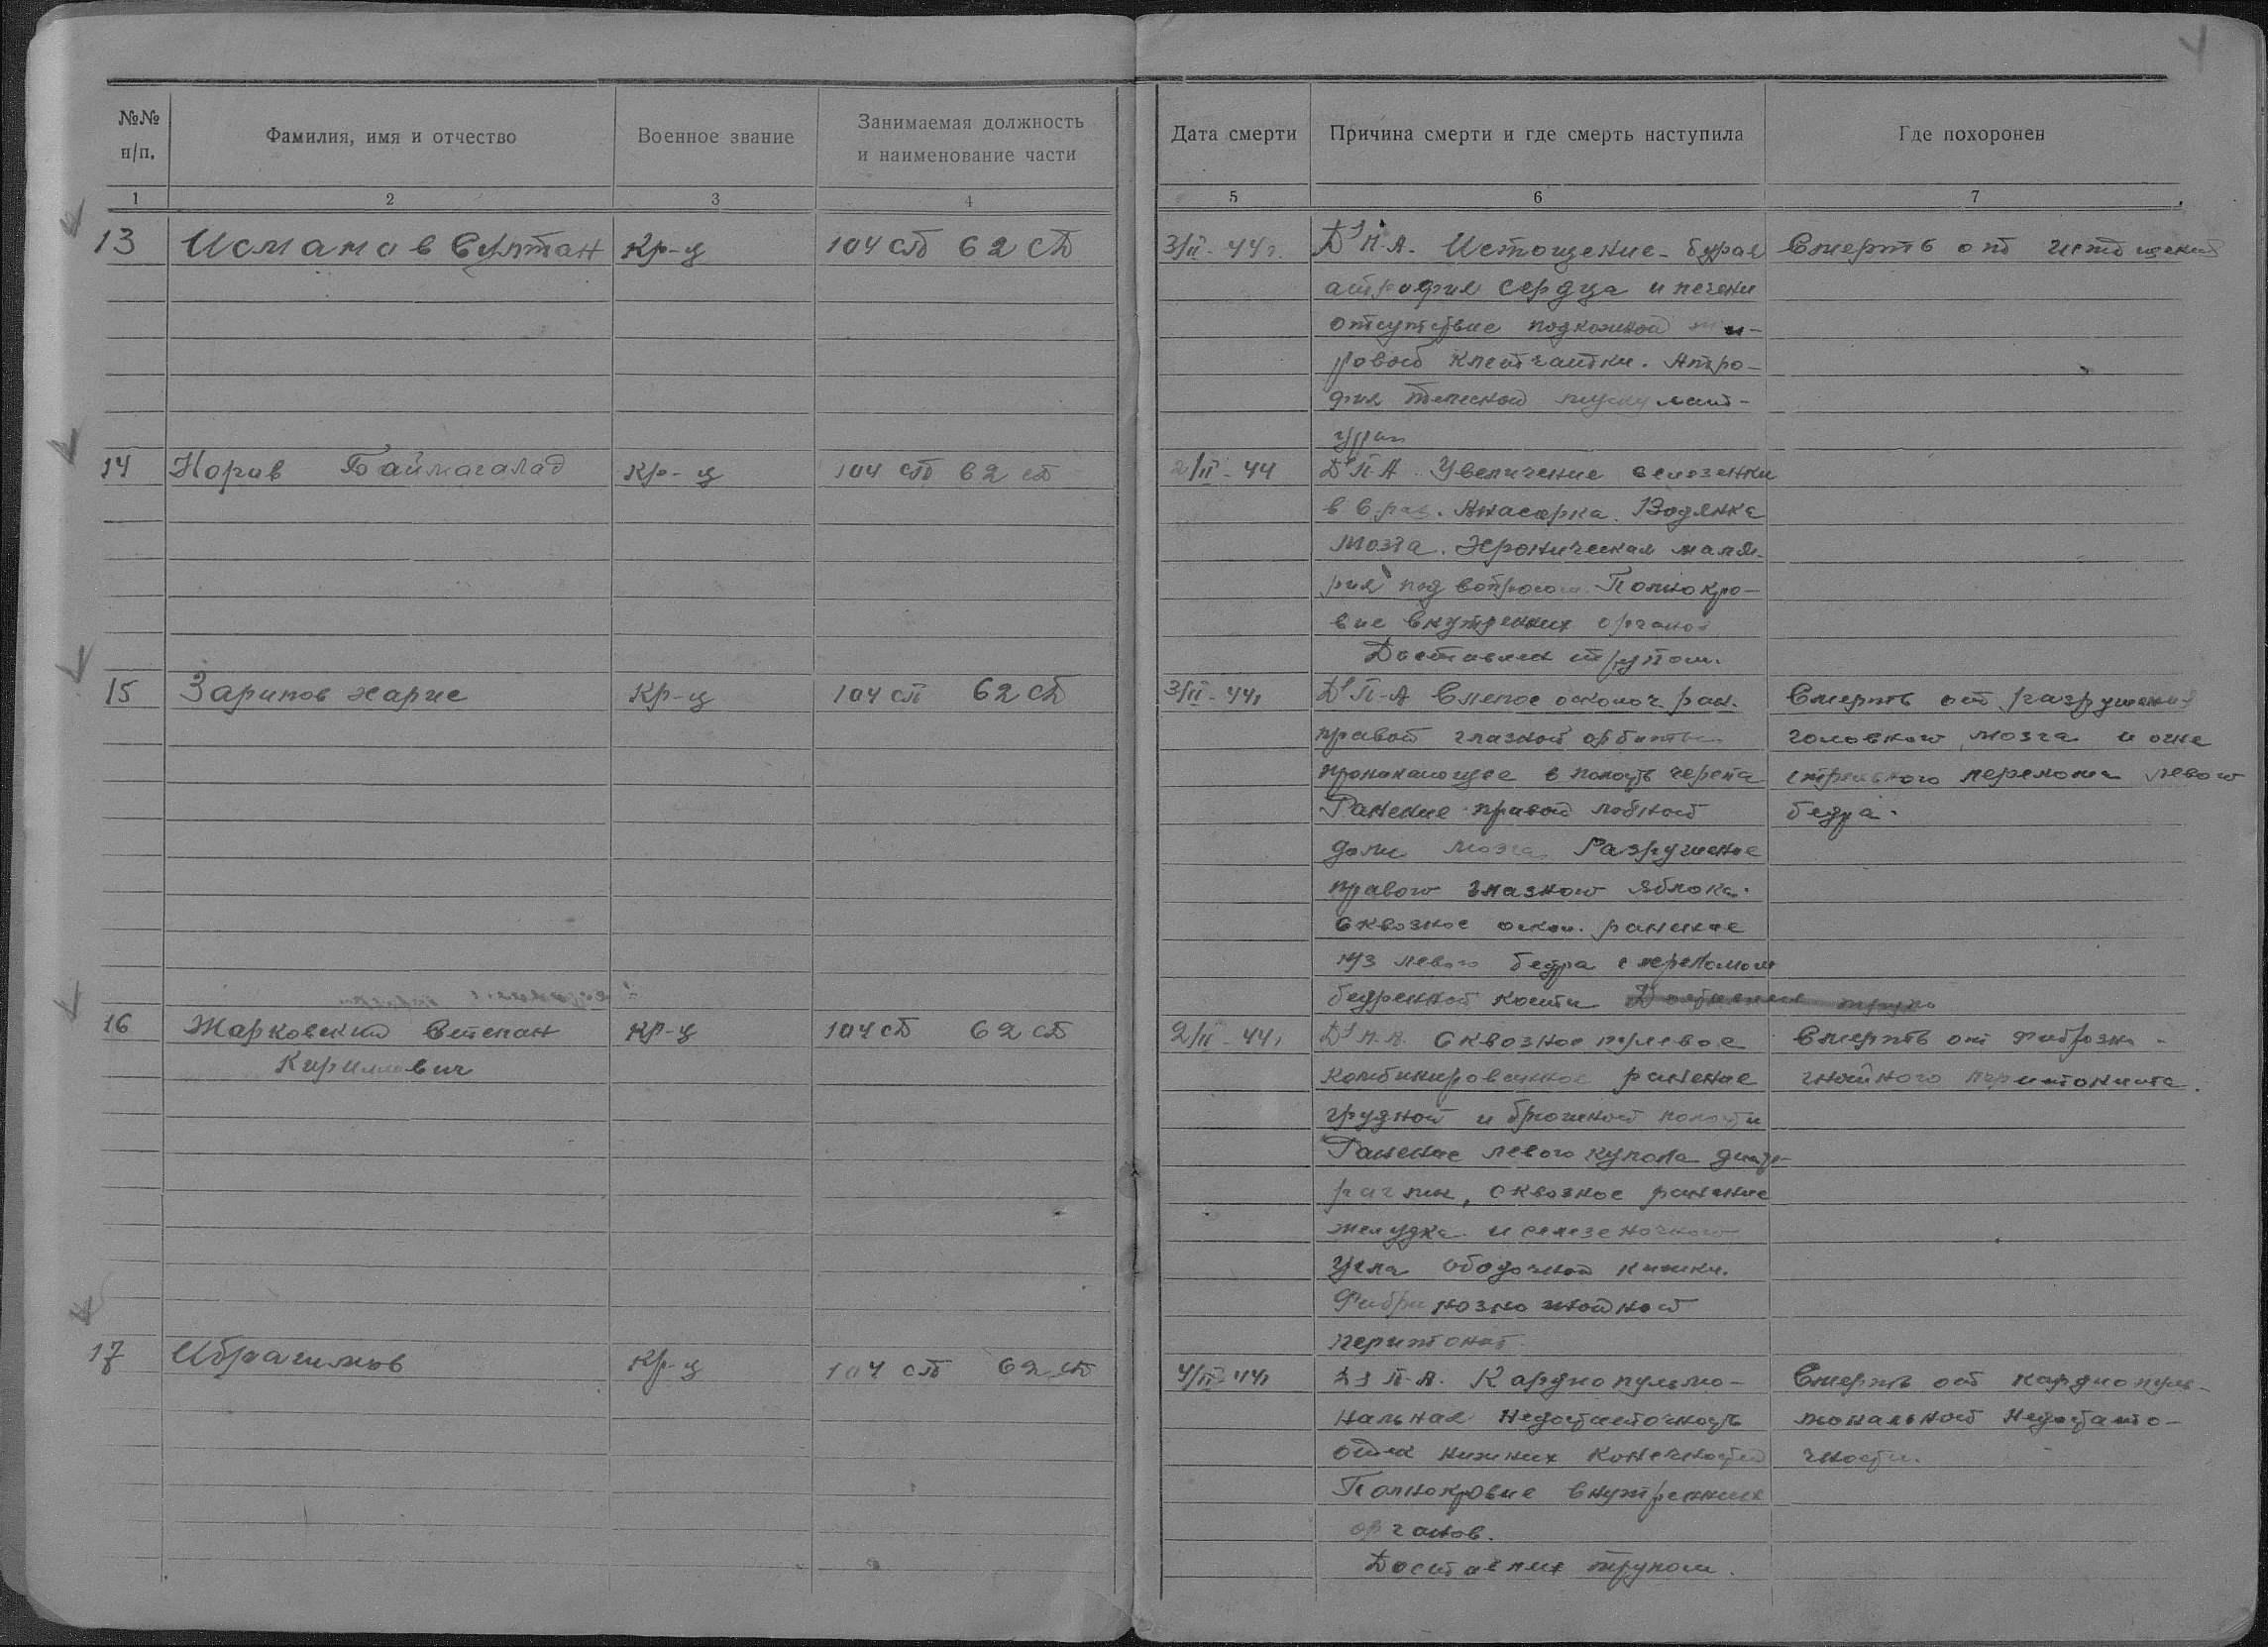 №№ п/п.
Фамилия, имя и отчество
Военное звание
Занимаемая должность
и наименование части
Дата смерти
Причина смерти и где смерть наступила
Где похоронен
1 2 3 4 5 6 7
13 Исманов Султан Кр-ц 104 сп 62 сд 3/II-44г. Дз П.-А. Истощение - бурая Смерть от истощения
атрофия сердца и печени
отсутствие подкожной жи-
ровой клетчатки. Атро-
фия телесной мускулат-
уры
14 Норов Баймагалад Кр-ц 104 сп 62 сд 2/II-44 Дз П-А Увеличение селезенки
в 6 раз. Анасарка. Водянка
мозга. Хроническая маля-
рия под вопросом Полнокро-
вие внутренних органов
Доставлен трупом.
15 Зарипов Харис Кр-ц 104 сп 62 сд 3/II-44г Дз П-А Слепое осколоч. ран. Смерть от разрушения
правой глазной орбиты головного мозга и огне
проникающее в полость черепа стрельного перелома левого
Ранение правой лобной бедра.
доли мозга. Разрушение
правого глазного яблока.
Сквозное оскол. ранение
н/з левого бедра с переломом
бедренной кости
16 Жарковский Степан Кр-ц 104 сп 62 сд 2/II-44г Дз П.-А. Сквозное пулевое Смерть от фиброзно-
Кириллович комбинированное ранение гнойного перитонита.
грудной и брюшной полости
Ранение левого купола диаф-
рагмы, сквозное ранение
желудка и селезеночного
угла ободочной кишки.
Фибринозно гнойной
перитонит
17 Ибрагимов Кр-ц 104 сп 62 сд 4/II-44г Дз П.-А. Кардиопульмо- Смерть от кардиопуль-
нальная недостаточность мональной недостато-
отек нижних конечностей чности.
Полнокровие внутренних
органов.
Доставлен трупом.